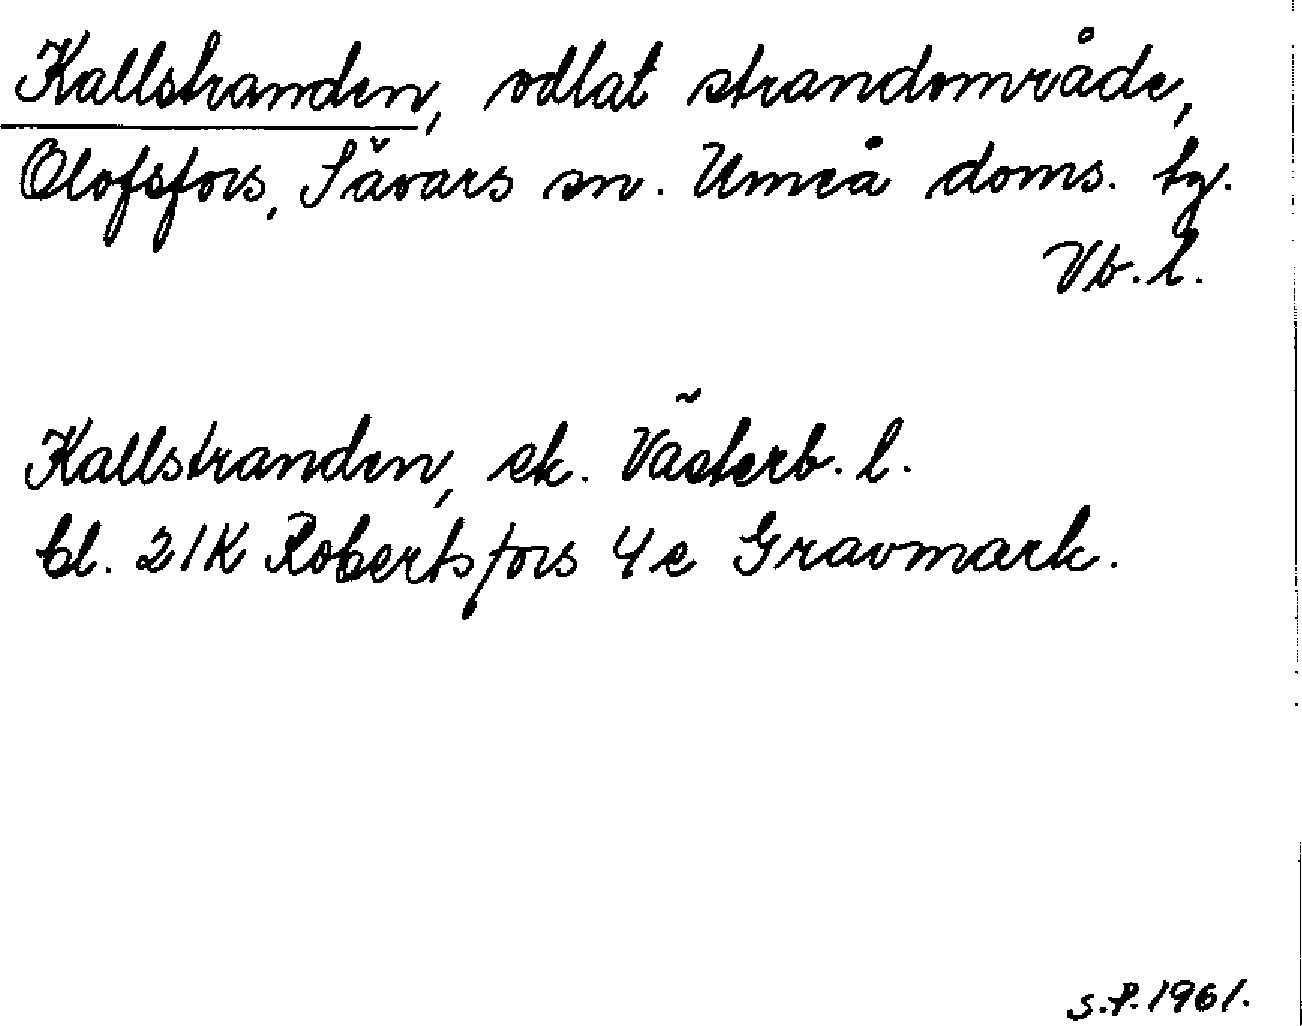 Kallstranden, odlat strandområde,
Olofsfors, Sävars sn. Umeå doms. tg.
Vb. l.
Kallstranden, ek. Västerb. l.
bl. 21K Robertsfors 4e Gravmark.
S.P. 1961.